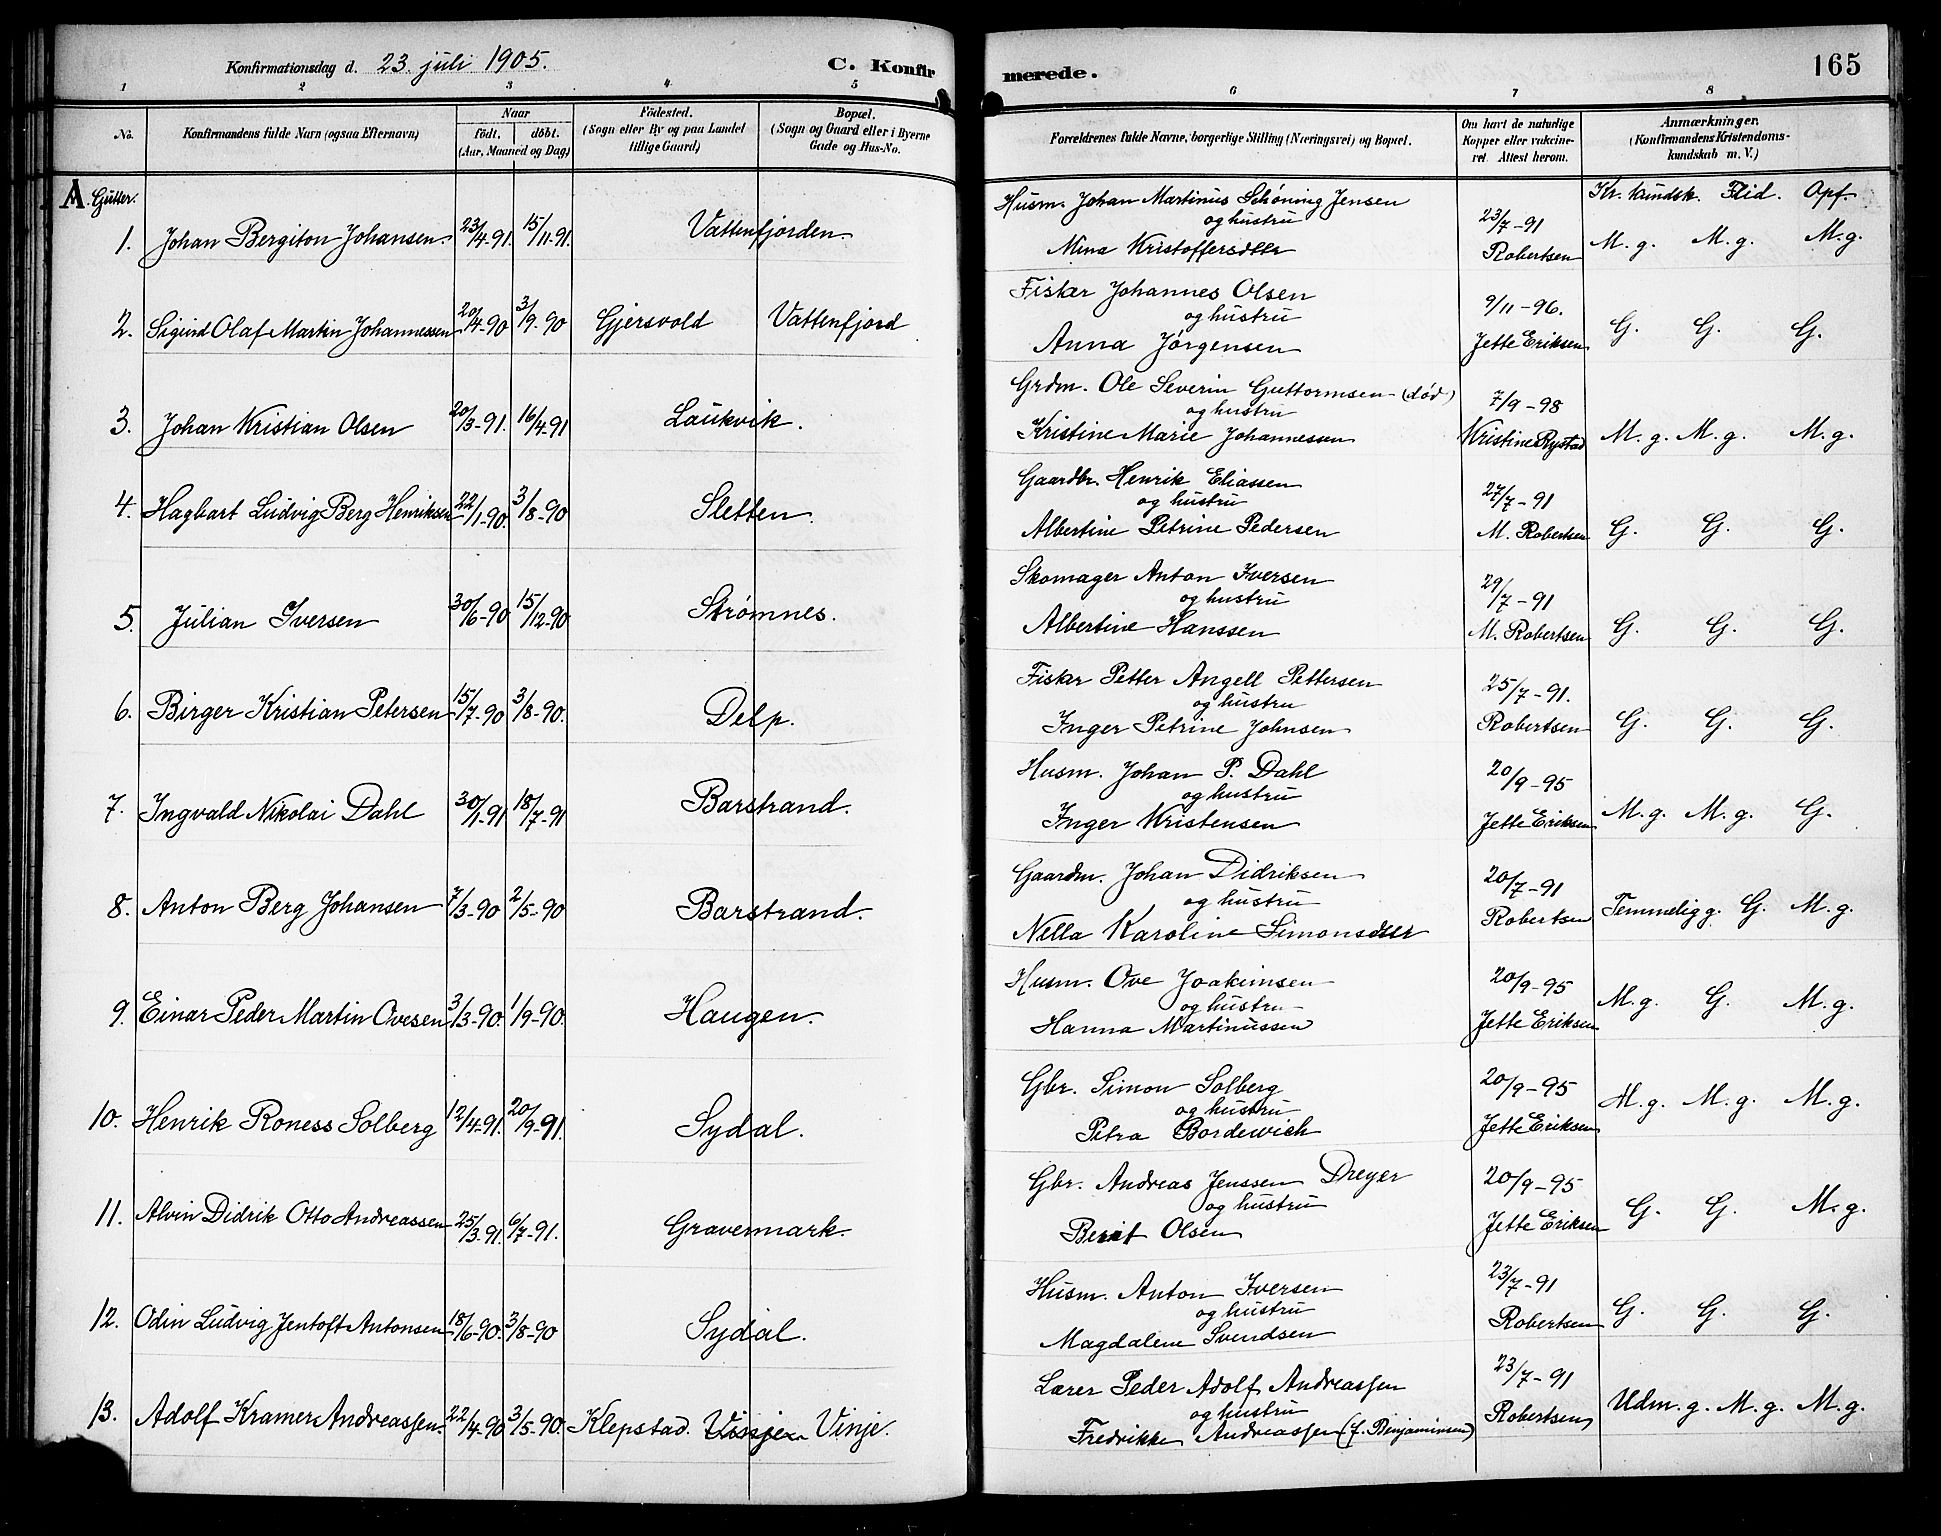 Konfirmationsdag d. 23. juli 1905. C. Konfir
merede. 165
1 2 3 4 5 6 7 8
No. Konfirmandens fulde Navn (ogsaa Efternavn) Naar født, døbt. (Aar, Maaned og Dag) Fødested. (Sogn eller By og paa Landet tillige Gaard) Bopæl. (Sogn og Gaard eller i Byerne Gade og Hus-No.
Forældrenes fulde Navne, borgerlige Stilling (Næringsvei) og Bopæl. Om havt de naturlige Kopper eller vakcineret Attest herom. Anmærkninger. (Konfirmandens Kristendomskundskab m. V.)
A Gutter.
Kr. kundsk. Flid. Opf.
1. Johan Bergiton Johansen. 23/4-91. 15/11-91. Vattenfjorden.
Husm. Johan Martinus Schøning Jensen
og hustru
Nina Kristoffersdtter
23/7-91
Robertsen M. g. M. g. M. g.
2. Sigurd Olaf Martin Johannessen 20/4-90 3/9-90 Gjersvold Vattenfjord
Fisker Johannes Olsen
og hustru
Anna Jørgensen
9/11-96.
Jette Eriksen G. G. G.
3. Johan Kristian Olsen 20/3-91. 16/4-91 Laukvik.
Grdm. Ole Severin Guttormsen (død)
og hustru
Kristine Marie Johannessen
7/9-98
Kristine Rystad M. g. M. g. M. g.
4. Hagbart Ludvig Berg Henriksen 22/1-90. 3/8-90 Sletten.
Gaardbr. Henrik Eliassen
og hustru
Albertine Petrine Pedersen
27/7-91
M. Robertsen G. G. G.
5. Julian Iversen 30/6-90 15/12-90 Strømnes.
Skomager Anton Iversen
og hustru
Albertine Hanssen
29/7-91
M. Robertsen G. G. G.
6. Birger Kristian Petersen 15/7-90 3/8-90. Delp.
Fisker Petter Angell Pettersen
og hustru
Inger Petrine Johnsen
25/7-91.
Robertsen G. G. G.
7. Ingvald Nikolai Dahl 30/1-91 18/7-91 Barstrand.
Husm. Johan P. Dahl
og hustru
Inger Kristensen
20/9-95
Jette Eriksen M. g. M. g. G.
8. Anton Berg Johansen 7/3-90 2/5-90 Barstrand.
Gaardm. Johan Didriksen
og hustru
Nella Karoline Simonsdtter
20/7-91
Robertsen Temmelig g. G. M. g.
9. Einar Peder Martin Ovesen 3/3-90. 1/9-90. Haugen.
Husm. Ove Joakimsen
og hustru
Hanna Martinussen
20/9-95
Jette Eriksen M. g. G. M. g.
10. Henrik Roness Solberg 12/4-91. 20/9-91. Sydal.
Gbr. Simon Solberg
og hustru
Petra Bordewich
20/9-95
Jette Eriksen M. g. M. g. M. g.
11. Alvin Didrik Otto Andreassen 25/3-91. 6/7-91. Gravermark.
Gbr. Andreas Jenssen Dreyer
og hustru
Berit Olsen
20/9-95
Jette Eriksen G. G. M. g.
12. Odin Ludvig Jentoft Antonsen 18/6-90. 3/8-90 Sydal.
Husm. Anton Iversen
og hustru
Magdalene Svendsen
23/7-91
Robertsen G. G. G.
13. Adolf Kramer Andreassen. 22/4-90 3/5-90. Klepstad. Vinje.
Lærer Peder Adolf Andreassen
og hustru
Fredrikke Andreassen (f. Benjaminsen)
23/7-91
Robertsen Udm. g. M. g. M. g.